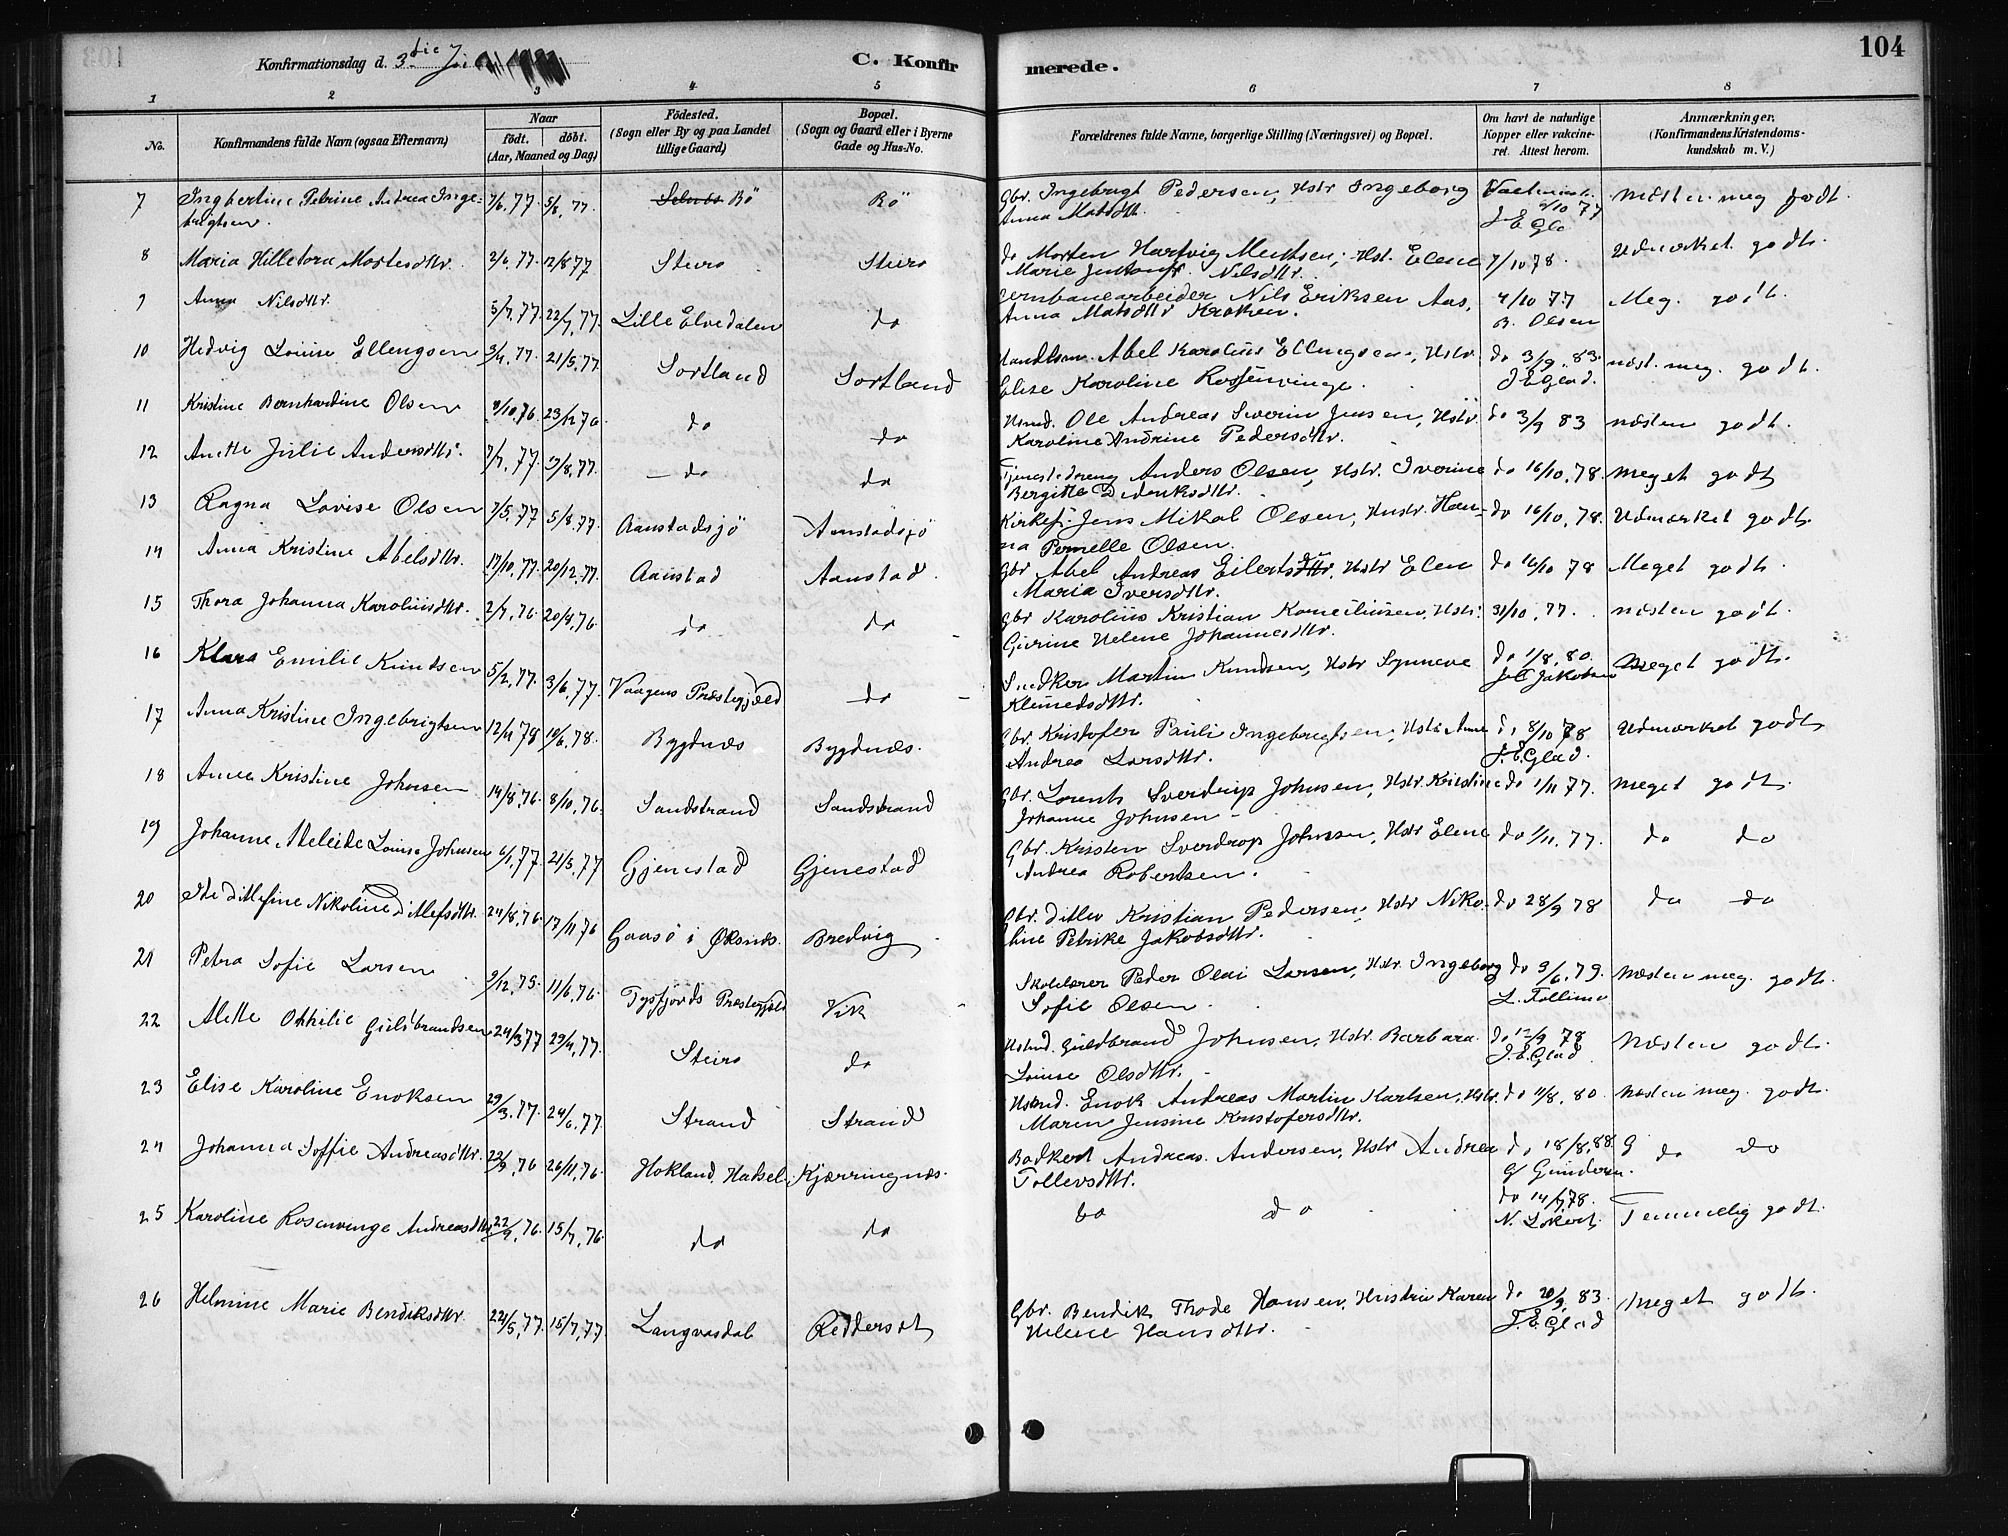 104
Konfirmationsdag d. 3die C. Konfirmerede.
1 2 3 4 5 6 7 8
No. Konfirmandens fulde Navn (ogsaa Efternavn) Naar födt. döbt. (Aar, Maaned og Dag) Födested. (Sogn eller By og paa Landet tillige Gaard) Bopæl. (Sogn og Gaard eller i Byerne Gade og Hus-No. Forældrenes fulde Navne, borgerlige Stilling (Næringsvei) og Bopæl. Om havt de naturlige Kopper eller vakcineret. Attest herom. Anmærkninger. (Konfirmandens Kristendomskundskab m. V.)
7 Ingbertine Petrine Andrea Inge- 7/6.77. 5/8.77. Bö Bö Gbr. Ingebrigt Pedersen, Hstr Ingeborg 9/10 77 næsten meg godt.
brigtsen. Anna Matsdttr. J E Gla
8 Maria Hilletora Mortesdttr. 2/6.77. 12/8 77 Steiro Steiro do Morten Hartvig Hst. Elene 7/10 78. Udmærket godt.
Marie Nilsdttr.
9 Anna Nilsdttr. 5/7.77. 22/7.77. Lille Elvedalen do Jernbanearbeider Nils Eriksen Aas, 4/10 77 Meg. godt.
Anna Matsdttr Kroken. B. Olsen
10 Hedvig Louise Ellengsen 3/4.77. 21/5.77. Sortland Sortland Handlsm. Abel Karolius Ellingsen, Hstr do 3/9.83. næst. meg. godt.
Elise Karoline Rosenvinge. J E Glad.
11 Kristine Bernhardine Olsen 9/10.76 23/12 76 do do Husmd. Ole Andreas Severin Jensen, Hstr do 3/9 83 næsten godt.
Karoline Andrine Pedersdttr.
12 Anette Julie Andersdttr. 7/7.77. 19/8.77. do do Tjenestedreng Anders Olsen, Hstr. Iverine do 16/10.78. meget godt
Bergitte Didriksdttr.
13 Ragna Lovise Olsen 7/5.77 5/8.77. Aanstadsjö Aanstadsjö Kirkes. Jens Mikal Olsen, Hustr. Han- do 16/10.78. Udmærket godt.
na Pernelle Olsen.
14 Anna Kristine Abelsdttr. 17/10.77. 20/12.77. Aanstad Aanstad. Gbr Abel Andreas Eilertsdttr, Hstr Elen do 16/10 78 Meget godt.
Maria Iversdttr.
15 Thora Johanna Karoliusdttr. 2/7.76. 20/9.76. do do Gbr Karolius Kristian Korneliusen, Hstr. 31/10.77. næsten godt.
Gurine Helene Johannesdttr.
16 Klara Emilie Knudsen 5/2.77. 3/6.77. Vaagens Præstegjæld do Snedker Martin Knudsen, Hstr Synneve do 1/8.80. Meget godt.
Klemedsdttr. Jakobsen
17 Anna Kristine Ingebrigtsen 12/4 78 10/6.78. Bygdnæs Bygdnæs. Gbr. Kristofer Pauli Ingebrigtsen, Hstr Anne do 8/10 78 Udmærket godt
Andrea Larsdttr. J.E.Glad.
18 Anna Kristine Johnsen 14/8.76. 8/10.76. Sandstrand Sandstrand Gbr. Lorents Sverdrup Johnsen, Hstr. Kristine do 1/11 77. meget godt.
Johanne Johnsen
19 Johanne Adeleide Louise Johnsen 6/1.77 21/5.77 Gjenestad Gjenestad Gbr. Kristen Sverdrop Johnsen, Hstr Elene do 1/11.77. do do
Andrea Robertsen.
20 Ditlefine Nikoline Ditlefsdttr. 24/8.76. 17/11 76 Gaasö i Øksnæs. Bredvig Gbr. Ditlev Kristian Pedersen, Hstr Niko- do 28/9 78 do do
line Petrike Jakobsdttr.
21 Petra Sofie Larsen 9/12.75. 11/6.76. Tysfjords Præstegjæld Vik Skolelærer Peder Olai Larsen, Hstr. Ingeborg do 3/6.79. Næsten meg. godt.
Sofie Olsen
22 Alette Othilie Gulbrandsen 24/3 77 29/4.77. Steiro do Husmd. Guldbrand Johnsen, Hstr. Barbara do 12/9 78 Næsten godt.
Louise Olsdttr. J.E.Glad
23 Elise Karoline Enoksen 29/3.77. 24/6.77 Strand Strand Husmd. Enok Andreas Martin Karlsen, Hstr. do 11/8.80. Næsten meg. godt.
Maren Jensine Kristofersdttr.
24 Johanna Soffie Andreasdttr. 22/9.76 26/11.76. Hokland, Hadsel Kjærringnæs. Bødkerd Andreas Andersen, Hstr Andrea do 18/8.88. do do
Tollevsdttr. G Gundersen.
25 Karoline Rosenvinge Andreasdttr 22/9.76. 15/7.76. do do do do do 14/7.78. Temmelig godt.
26 Helmine Marie Bendiksdttr. 22/5.77. 15/7.77 Langvasdal Gbr. Bendik Thode Hansen, Hustrue Karen do 20/9.83. Meget godt.
Helene Hansdttr. J.E.Glad